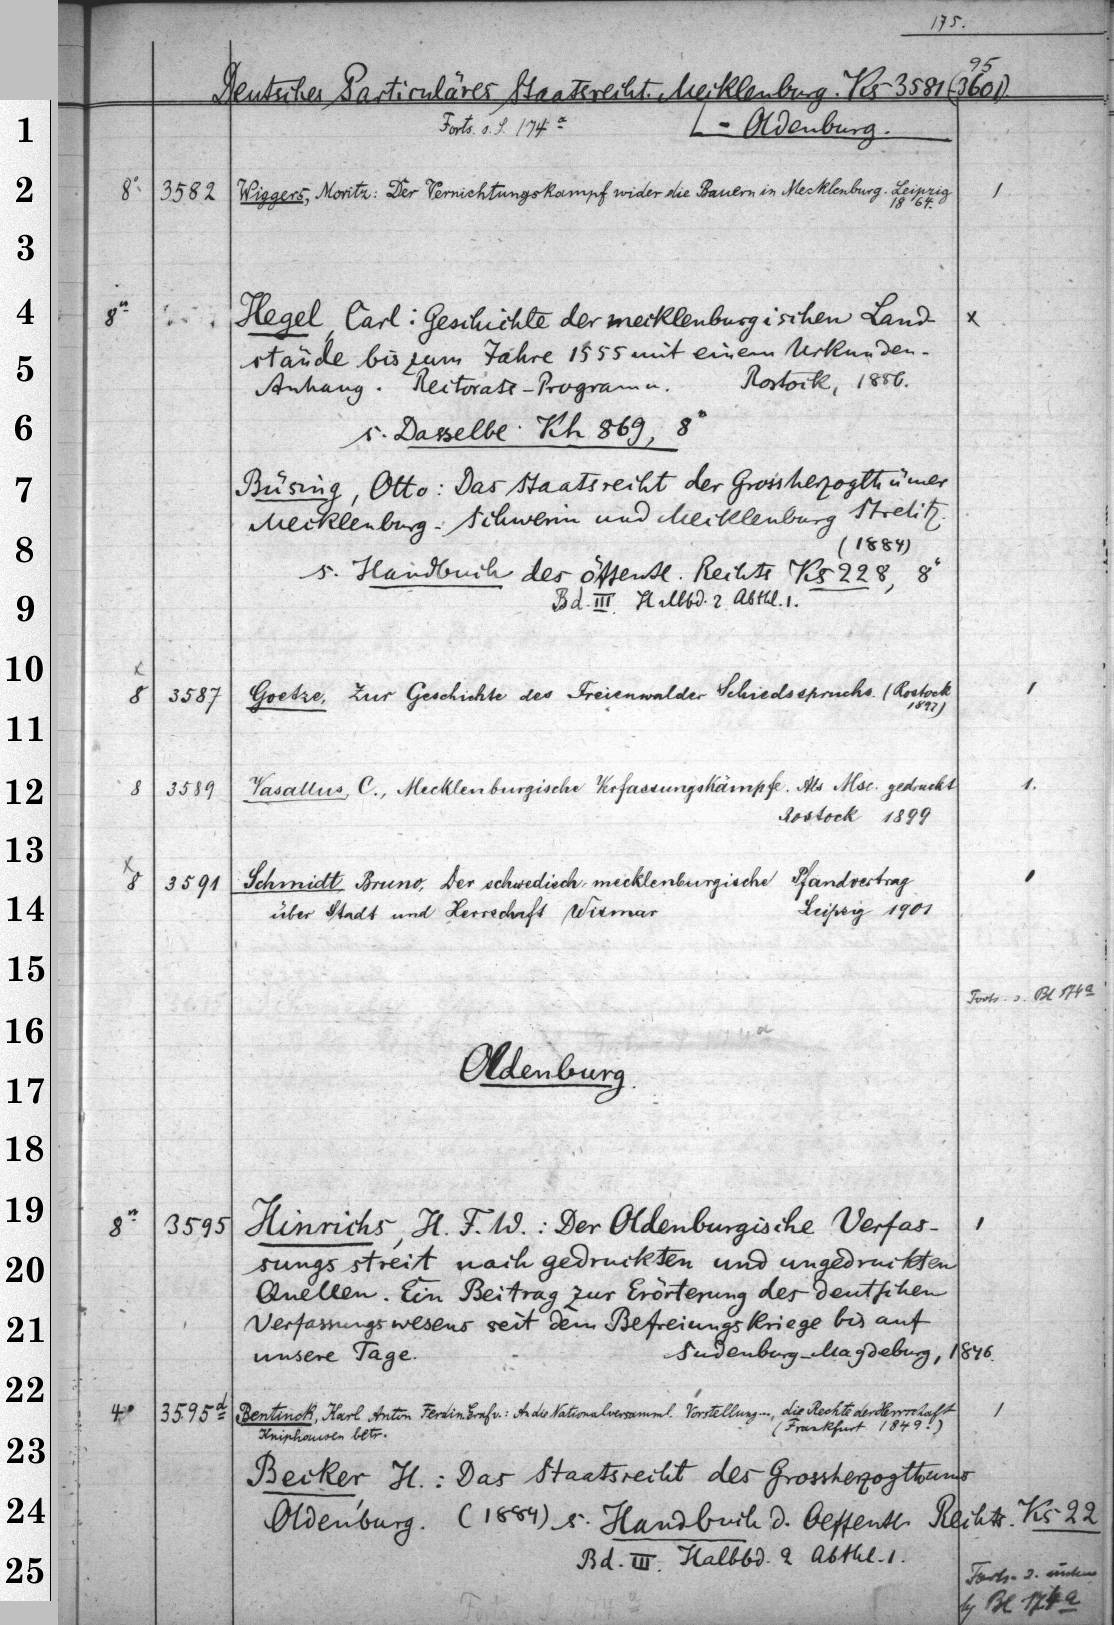 175.
95
Deutsches Particuläres Staatsrecht. Mecklenburg. Ks 3581 (3601)
Forts. s. S. 174 a
- Oldenburg.
1
2
3
4
5
6
7
8
9
10
11
12
13
14
15
16
17
18
19
20
21
22
23
24
25
8° 3582 Wiggers, Moritz: Der Vernichtungskampf wider die Bauern in Mecklenburg. Leipzig 1
1864.
8° Hegel, Carl: Geschichte der mecklenburgischen Land- x
stände bis zum Jahre 1555 mit einem Urkunden-
Anhang. Rectorats-Programm. Rostock, 1856.
s. Dasselbe Kh 869, 8°
Büsing, Otto: Das Staatsrecht der Grossherzogthümer
Mecklenburg-Schwerin und Mecklenburg Strelitz.
(1884)
s. Handbuch des öffentl. Rechts Ks 228, 8°
Bd. III. Halbbd. 2 Abthl. 1.
x
8 3587 Goetze, Zur Geschichte des Freienwalder Schiedsspruchs. (Rostock 1
1892)
8 3589 Vasallus, C., Mecklenburgische Verfassungskämpfe. Als Msc. gedruckt 1.
Rostock 1899
x
8 3591 Schmidt Bruno, Der schwedisch-mecklenburgische Pfandvertrag 1
über Stadt und Herrschaft Wismar Leipzig 1901
Forts. s. Bl 174a
Oldenburg.
8° 3595 Hinrichs, H. F. W.: Der Oldenburgische Verfas- 1
sungsstreit nach gedruckten und ungedruckten
Quellen. Ein Beitrag zur Erörterung des deutschen
Verfassungswesens seit dem Befreiungskriege bis auf
unsere Tage. Sudenburg-Magdeburg, 1846.
4° 3595 d Bentinck, Karl Anton Ferdin. Graf v.: An die Nationalversamml. Vorstellung..., die Rechte der Herrschaft 1
Kniphausen betr. (Frankfurt 1849.)
Becker, H.: Das Staatsrecht des Grossherzogthums
Oldenburg. (1884) s. Handbuch d. Oeffentl. Rechts. Ks 22
Bd. III. Halbbd. 2 Abthl. 1.
Forts. s.
Bl 174a